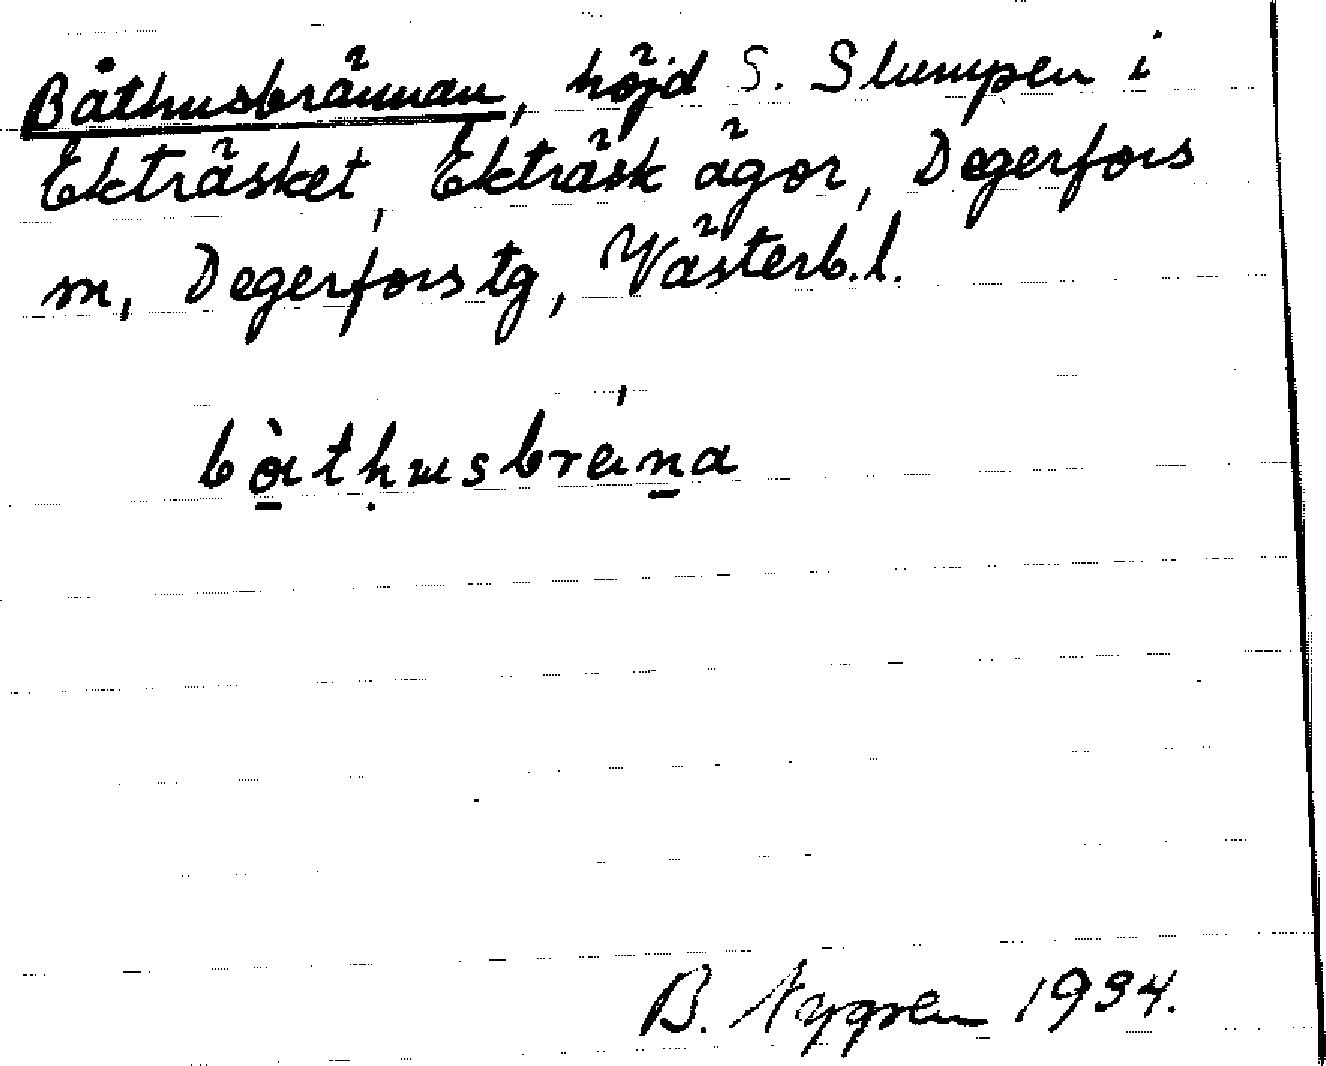 Båthusbrännan, höjd S. Slumpen i
Ekträsket, Ekträsk ägor, Degerfors
sn, Degerfors tg, Västerb.l.
bò̠ɩtḥusbréin̠a
B. Nygren 1934.